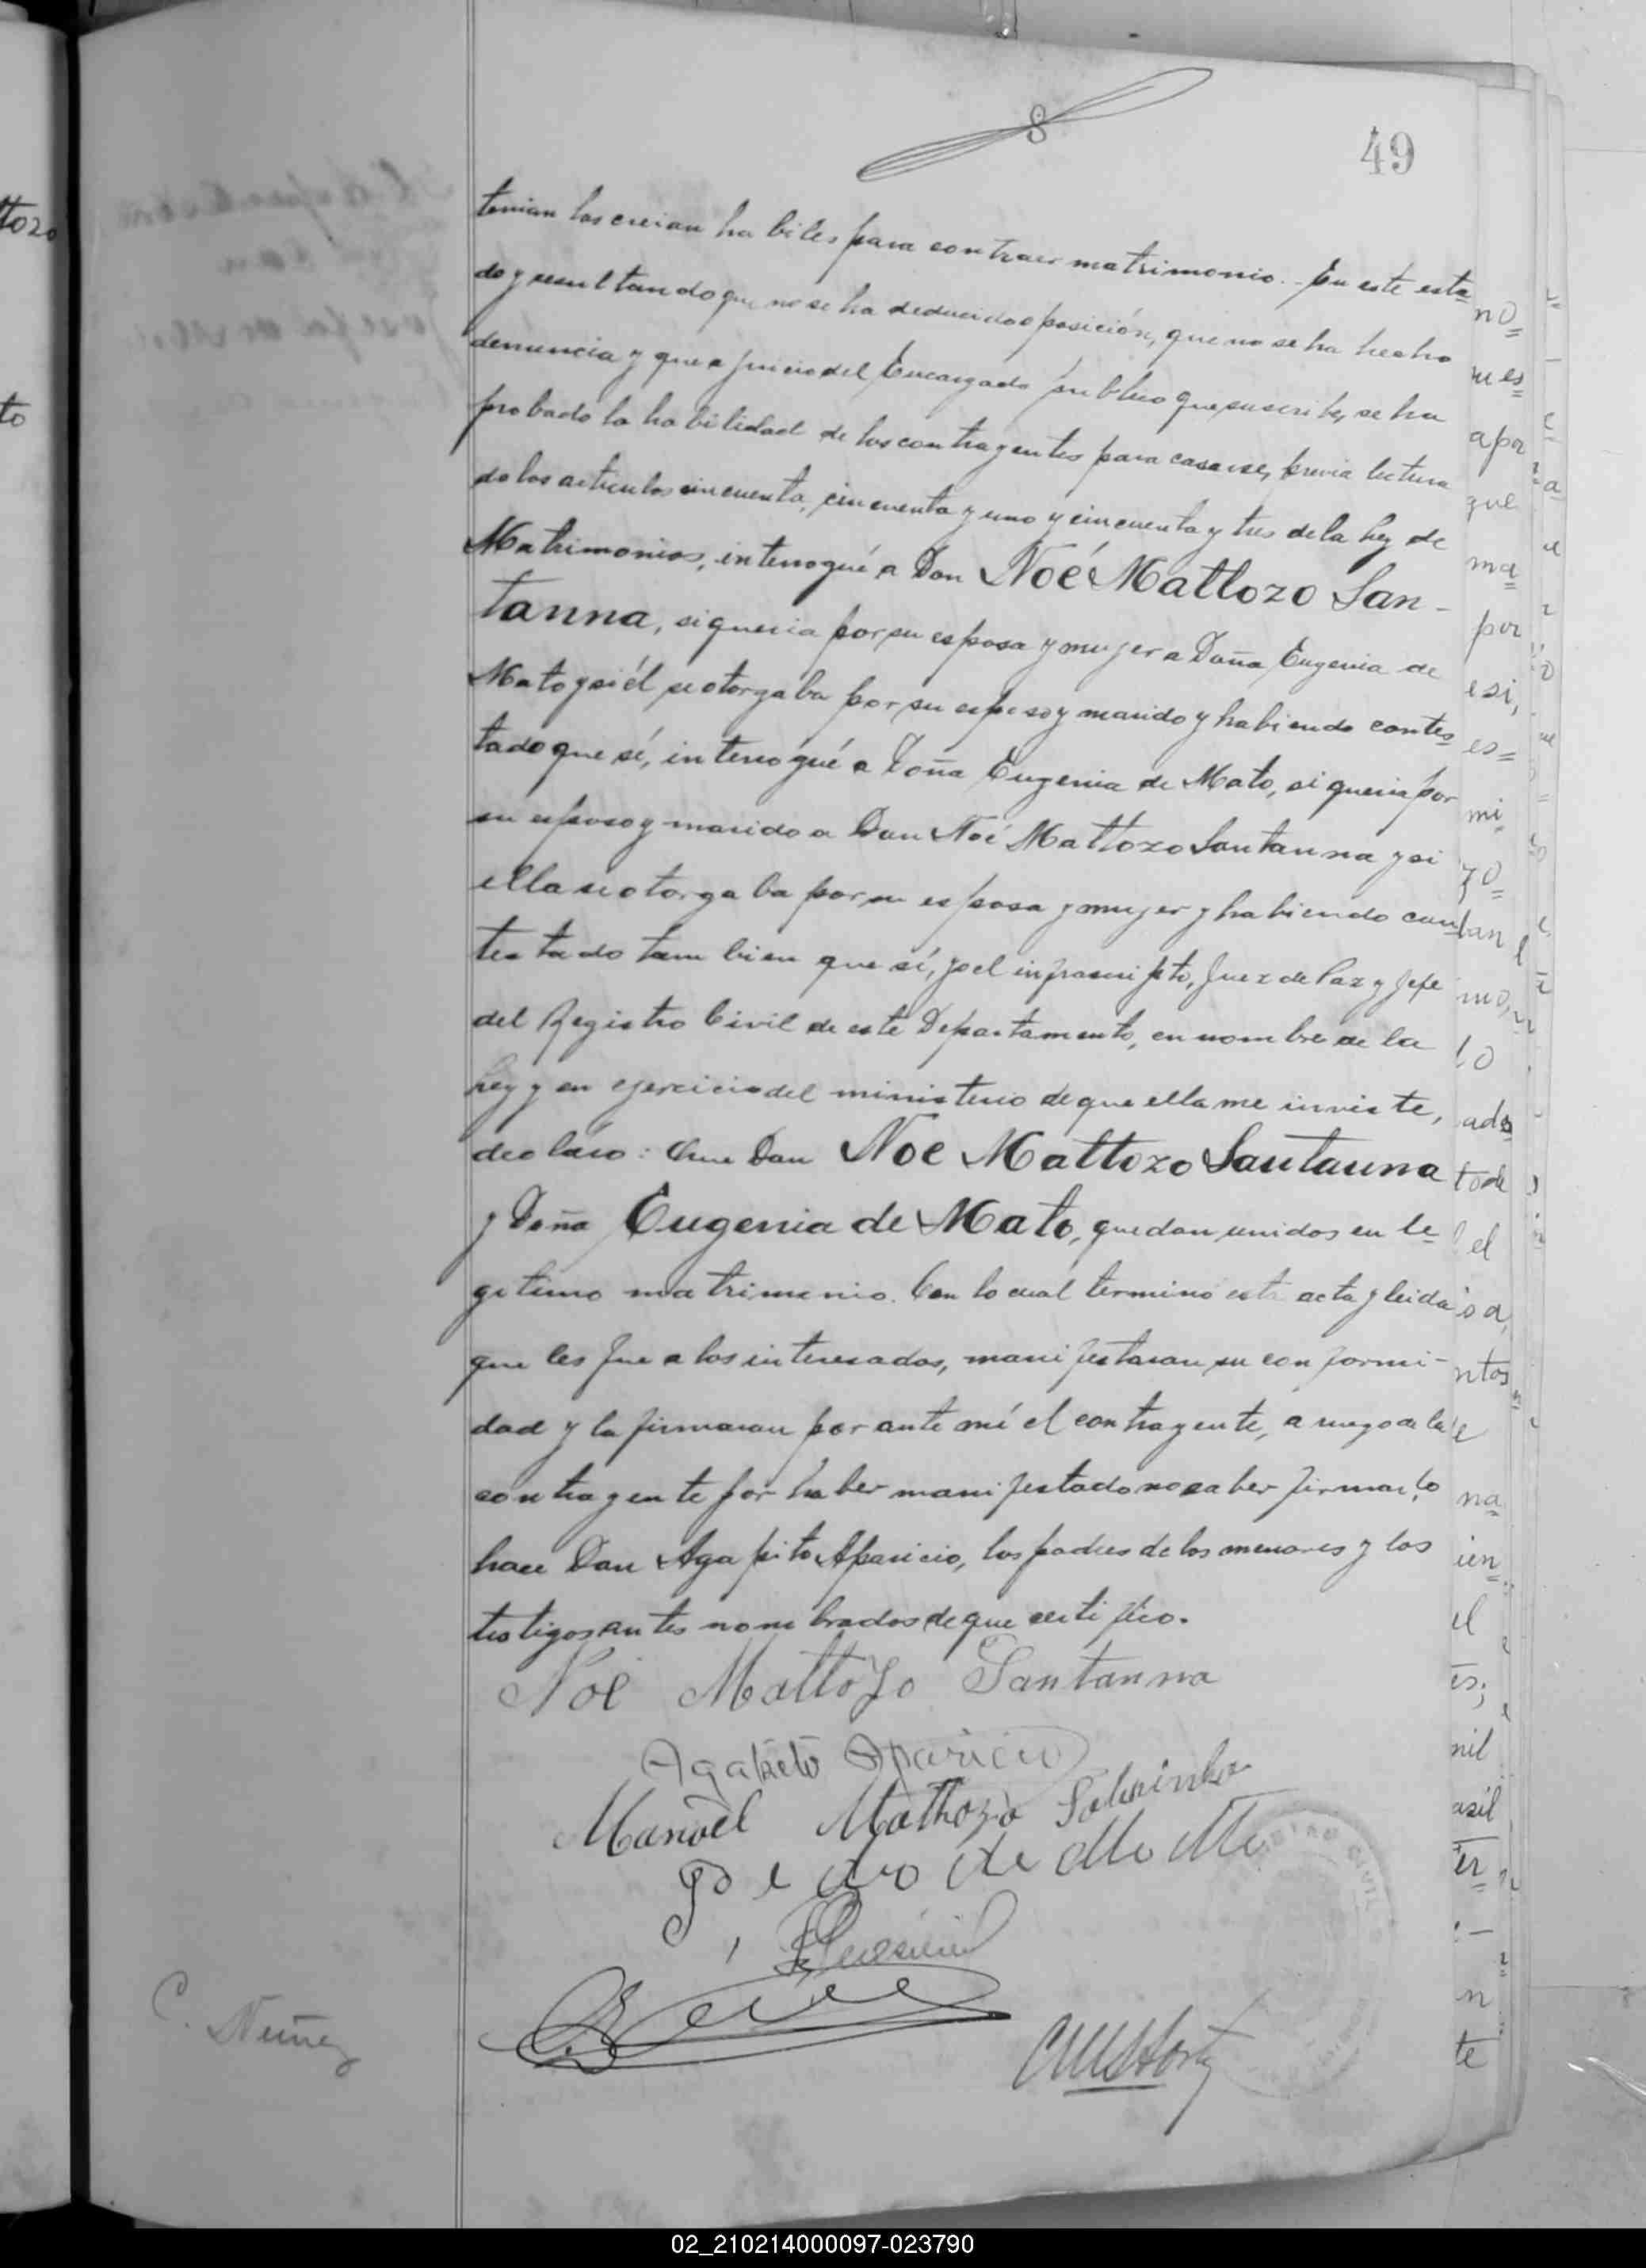 8
49
tenian los creian habiles para contraer matrimonio.- En este esta=
do y resultando que no se ha deducido oposición, que no se ha hecho
denuncia y que a juicio del Encargado publico que suscribe, se ha
probado la habilidad de los contrayentes para casarse, previa lectura
de los articulos cincuenta, cincuenta y uno y cincuenta y tres de la Ley de
Matrimonios, interrogué a Don Noé Mattozo San-
tanna, si queria por su esposa y mujer a Doña Eugenia de
Mato y si él se otorgaba por su esposo y marido y habiendo contes=
tado que sí, interrogué a Doña Eugenia de Mato, si queria por
su esposo y marido a Don Noé Mattozo Santanna y si
ella se otorgaba por su esposa y mujer y habiendo con=
testado tambien que sí, yo el infrascripto, Juez de Paz y Jefe
del Registro Civil de este Departamento, en nombre de la
Ley y en ejercicio del ministerio de que ella me inviste,
declaro: Que Don Noe Mattozo Santanna
y Doña Eugenia de Mato, quedan unidos en le=
gitimo matrimonio. Con lo cual terminó esta acta y leida
que les fue a los interesados, manifestaron su conformi-
dad y la firmaron por ante mí el contrayente, a ruego de la
contrayente por haber manifestado no saber firmar lo
hace Don Agapito Aparicio, los padres de los menores y los
testigos antes nombrados de que certifico.
Noé Mattozo Santanna
Agapito Aparicio
Manoel Mattozo Sobrinho
Pedro de
C. Nuñez
02_210214000097-023790